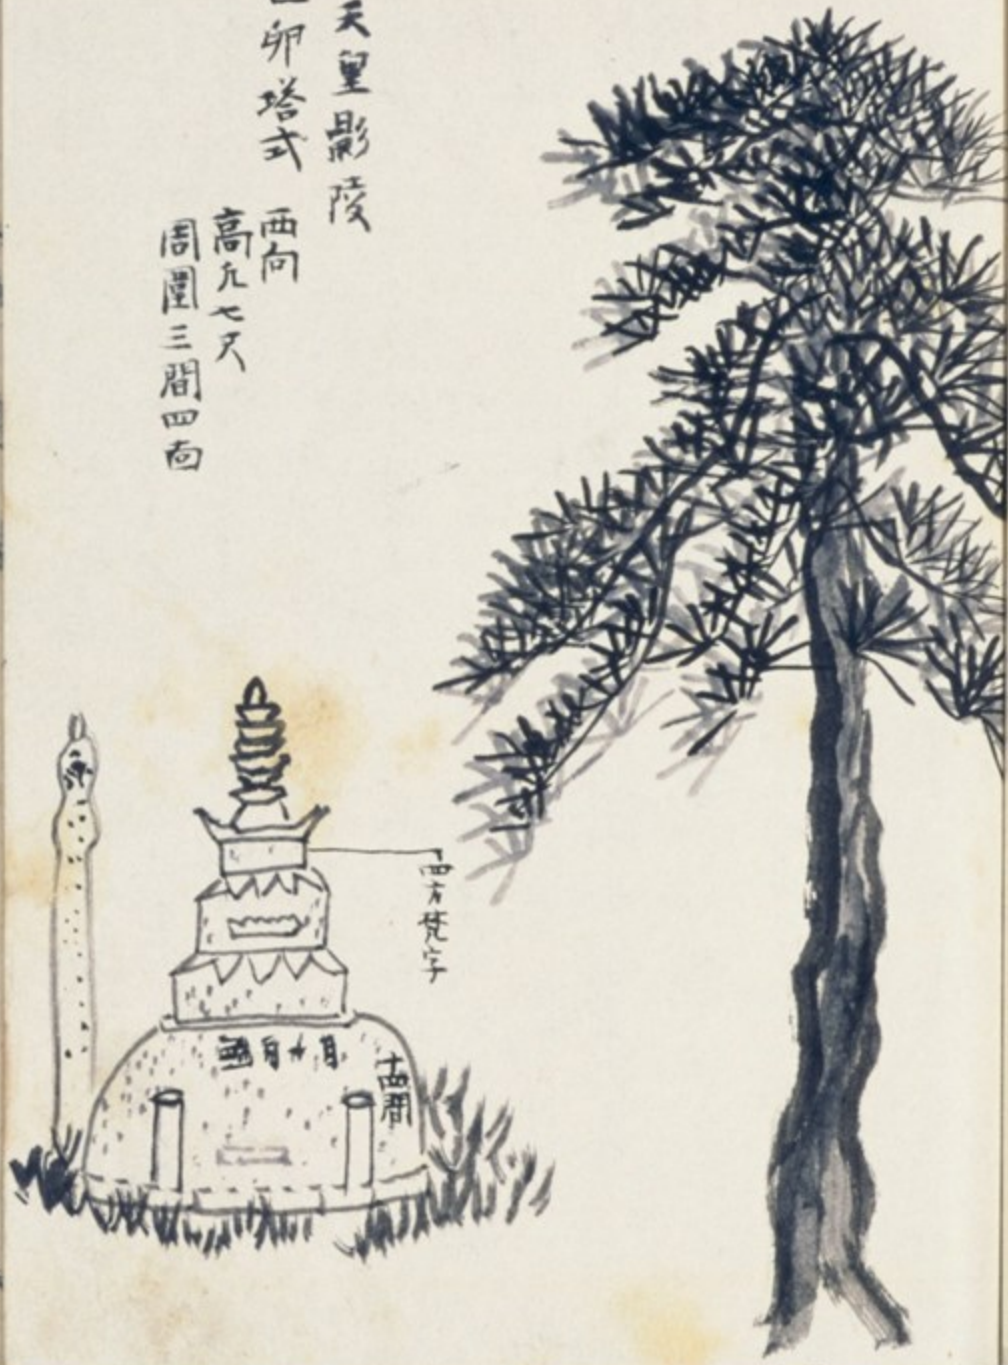 天皇影陵
卵塔式
西向
高九七尺
周圍三間四面
四方梵字